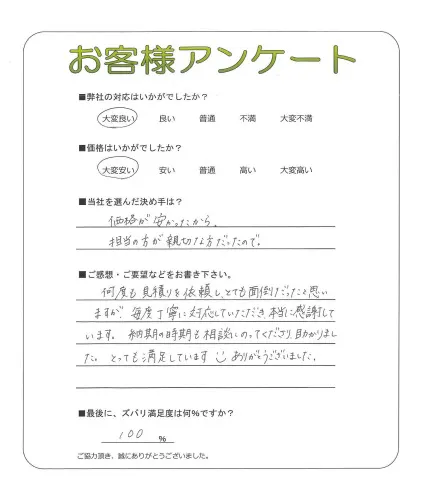 お客様アンケート
■弊社の対応はいかがでしたか？
大変良い 良い 普通 不満 大変不満
■価格はいかがでしたか？
大変安い 安い 普通 高い 大変高い
■当社を選んだ決め手は？
価格が安かったから。
担当の方が親切な方だったので。
■ご感想・ご要望などをお書き下さい。
何度も見積りを依頼し、とても面倒だったと思い
ますが毎度丁寧に対応していただき本当に感謝して
います。納期の時期も相談にのってくださり、助かりまし
た。とっても満足しています ありがとうございました。
■最後に、ズバリ満足度は何％ですか？
100 ％
ご協力頂き、誠にありがとうございました。